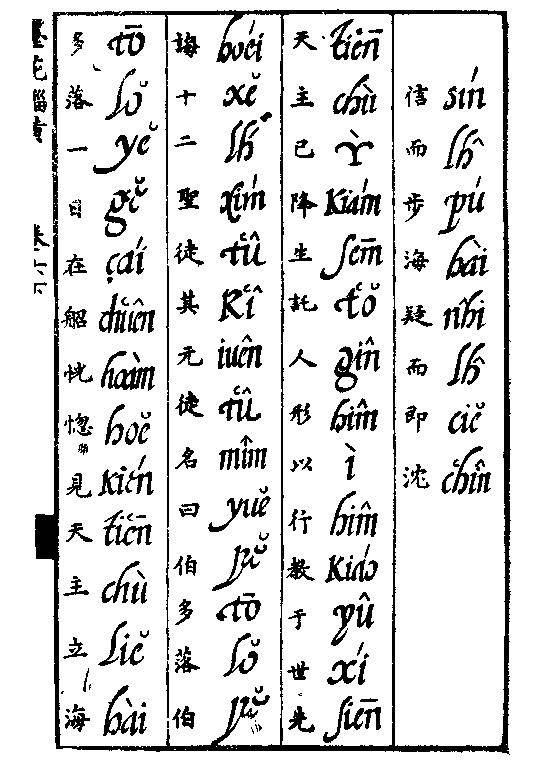 信而步海疑而即沈
sín lhŷ pú hài nhî lhŷ ciĕ chîn
天主已降生託人形以行教于世先
tiēn chù ỳ kiám sēm tŏ gîn hîm ì hîm kiáo yû xí siēn
誨十二聖徒其元徒名曰伯多落伯
hoéi xĕ lhý xím tû kî iuên tû mîm yuĕ pĕ tō lŏ pĕ
多落一日在船恍惚見天主立海
tō lŏ yĕ gĕ çái chuên hoàm hoĕ kién tiēn chù liĕ hài